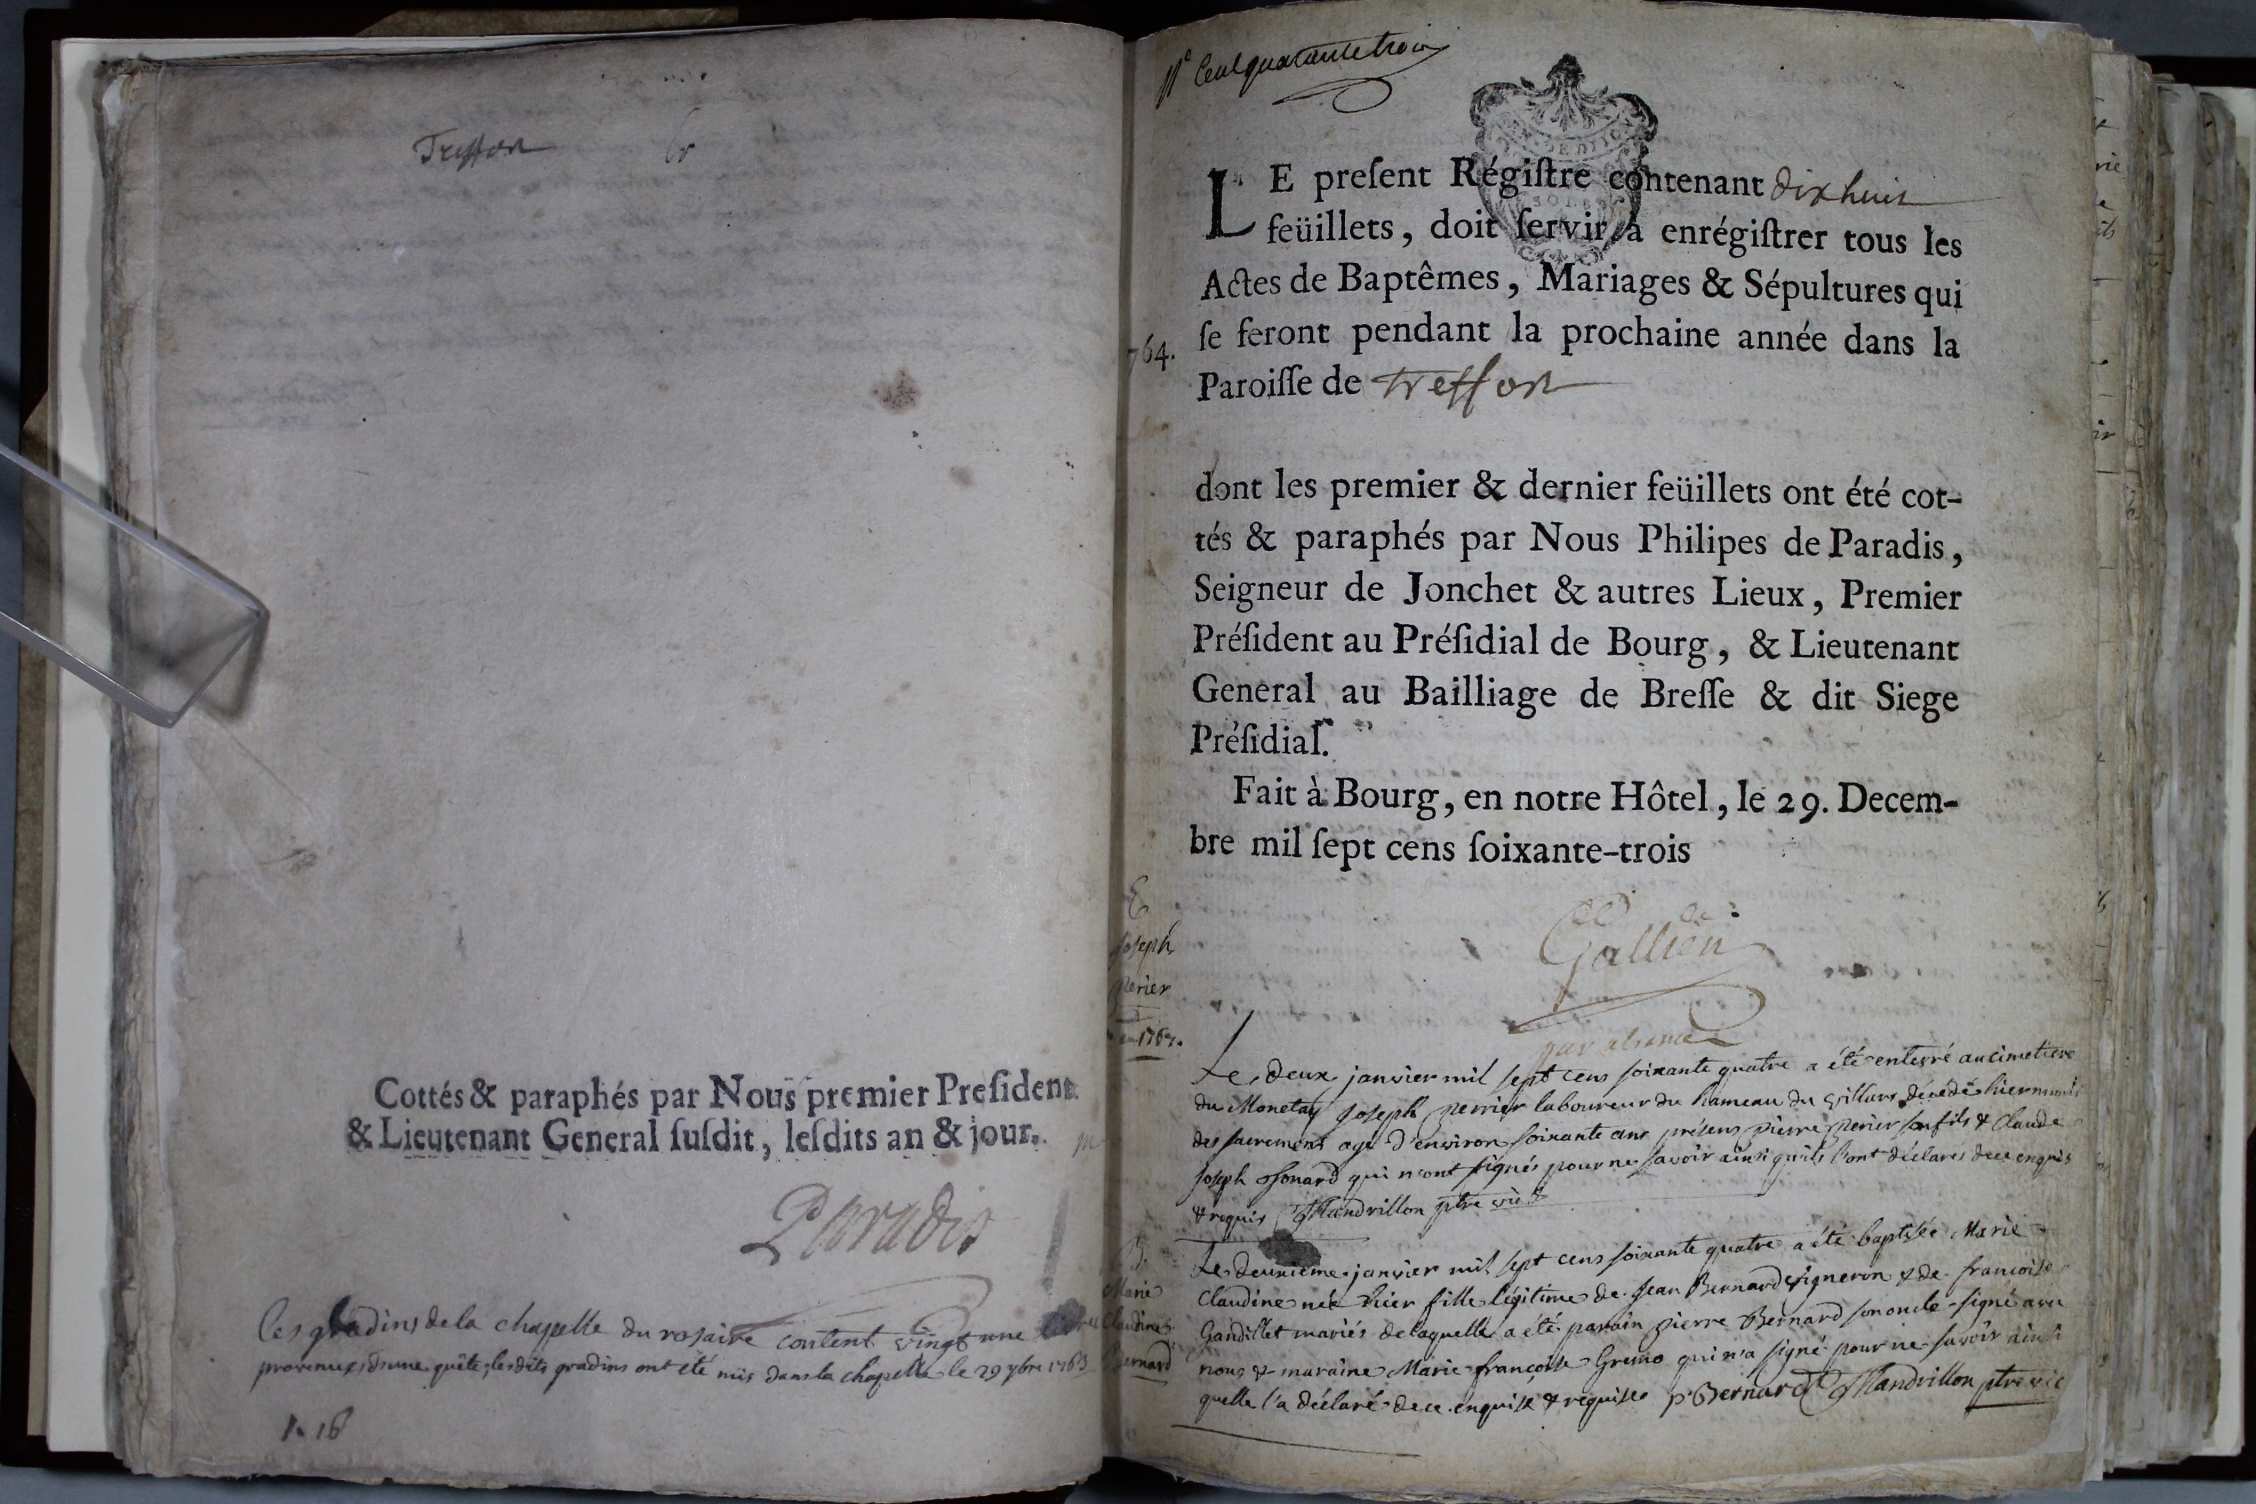 Treffort
Cottés & paraphés par Nous premier Preſident
& Lieutenant General ſuſdit, leſdits an & jour.
Paradis
les gradins de la chapelle du rosaire coutent vingt une livres
provenues d'une quête, lesdits gradins ont été mis dans la chapelle le 29 9bre 1763
Nº Cent quarante trois
LE preſent Régiſtre contenant dix huit
feüillets, doit ſervir à enrégiſtrer tous les
Actes de Baptêmes, Mariages & Sépultures qui
ſe feront pendant la prochaine année dans la
764.
Paroiſſe de treffort
dont les premier & dernier feüillets ont été cot-
tés & paraphés par Nous Philipes de Paradis,
Seigneur de Jonchet & autres Lieux, Premier
Préſident au Préſidial de Bourg, & Lieutenant
General au Bailliage de Breſſe & dit Siege
Préſidial.
Fait à Bourg, en notre Hôtel, le 29. Decem-
bre mil ſept cens ſoixante-trois
Gallien
par absence
E
Joseph
perier
Le deux janvier mil sept cens soixante quatre a été enterré au cimetiere
du Monetay Joseph perrier laboureur du hameau du villars décédé hier muni
des sacremens agé d'environ soixante ans présens pierre perier son fils & Claude
Joseph qui n'ont signés pour ne savoir ainsi qu'ils l'ont déclarés de ce enquis
& requis Mandrillon ptre vic
B.
Marie
Claudine
Bernard
Le deuxieme janvier mil sept cens soixante quatre a été baptisée Marie
Claudine née hier fille légitime de Jean Bernard vigneron & de francoise
Gandillet mariés de laquelle a été parain pierre Bernard son oncle signé avec
nous & maraine Marie françoise Gremo qui n'a signé pour ne savoir ainsi
quelle l'a déclaré de ce enquise & requise P Bernard Mandrillon ptre vic